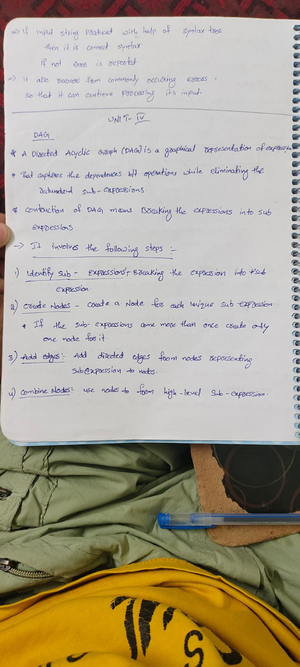 =) If valid string Product with help of syntax tree
then it is correct syntax
If not error is reported
=) It also recovers from commonly occuring errors.
so that it can continue processing its input.
UNIT-IV
DAG
* A Directed Acyclic Graph (DAG) is a graphical representation of expression
* That captures the dependences b/t operations while eliminating the
redundent sub-expressions
* contruction of DAG means Breaking the expressions into sub
expressions
→ It involves the following steps :-
1) Identify sub-expressions:- Breaking the expression into sub
expression
2) Create Nodes - Create a Node for each unique sub expression.
* If the sub-expressions came more than once create only
one node for it.
3) Add edges:- Add directed edges from nodes representing
subexpression to nodes.
4) Combine Nodes: use nodes to form high-level sub-expression.
S